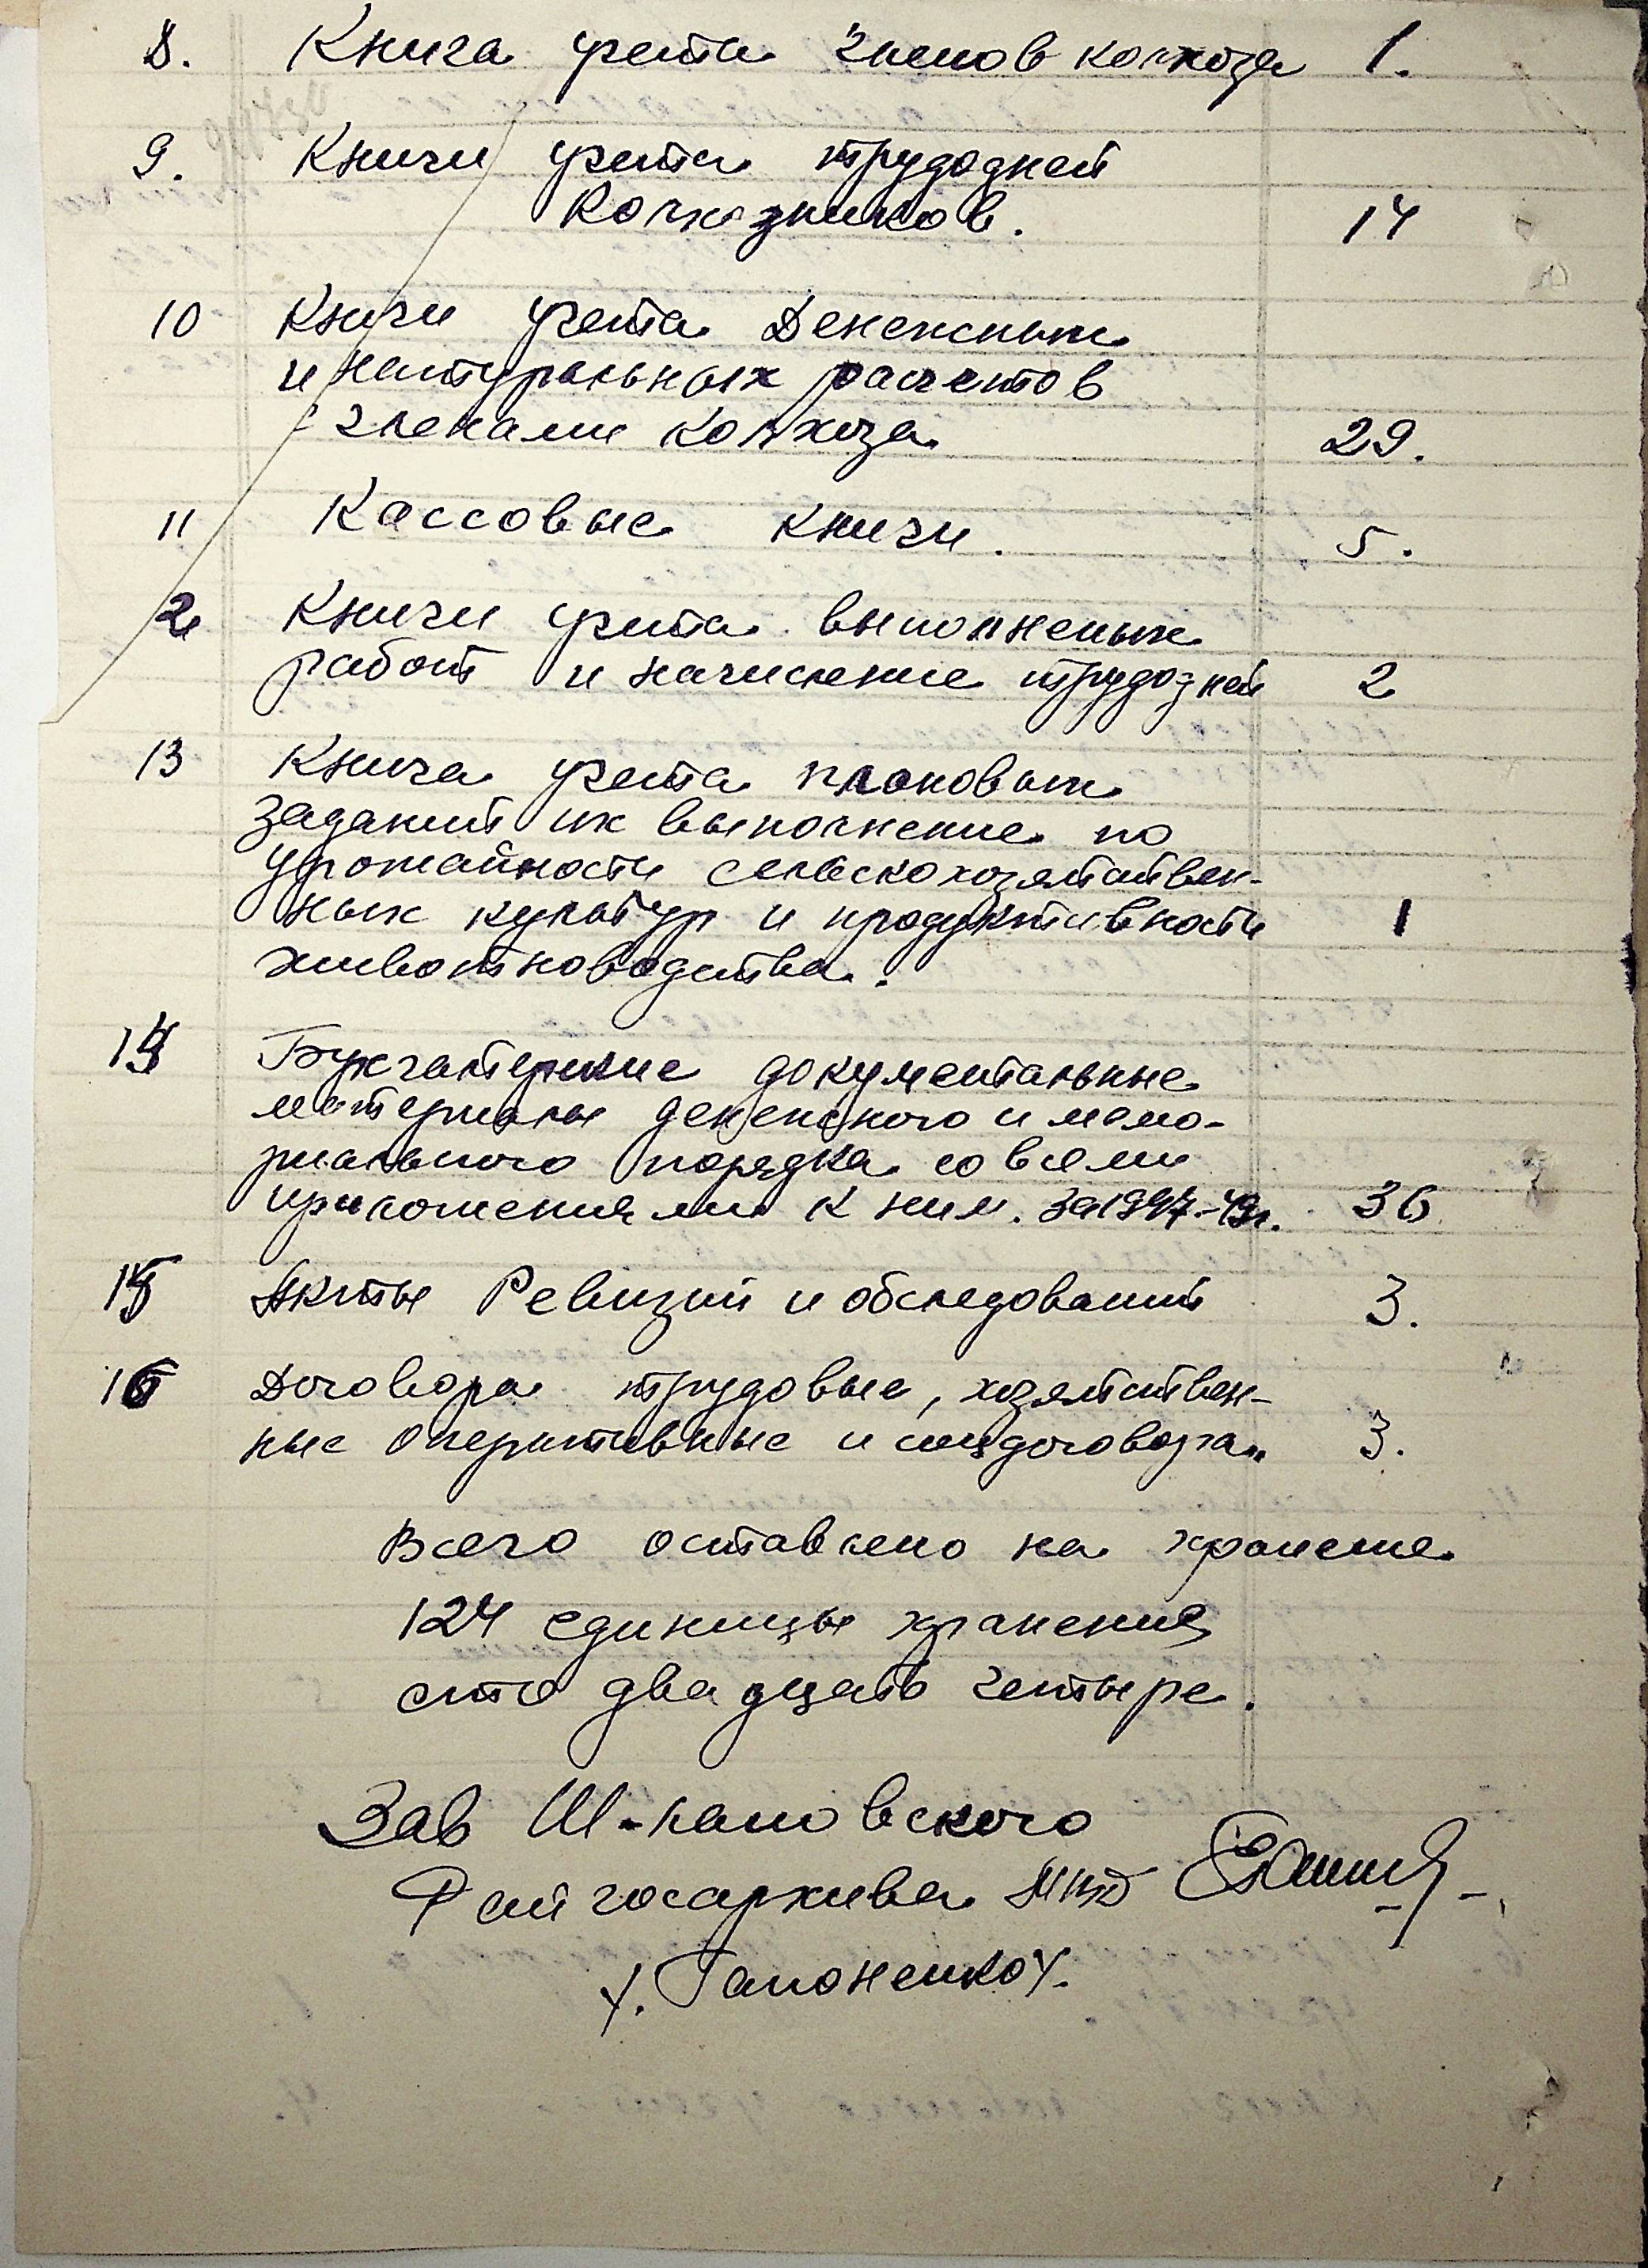 8. Книга учета членов колхоза 1.
9. Книги учета трудодней
Колхозников. 14
10 Книги учета Денежных
и натуральных расчетов
с членами колхоза 29.
11 Кассовые книги. 5.
12 Книги учета выполненых
работ и начисление трудодней 2
13 Книга учета плановых
заданий их выполнение по
урожайности сельскохозяйствен-
ных культур и продуктивности 1
животноводства.
14 Бухгалтерские документальные
материалы денежного и мемо-
риального порядка со всеми
приложениями к ним. За 1947-49г. 36
15 Акты Ревизий и обследований 3.
16 Договора трудовые, хозяйствен-
ные оперативные и соцдоговора 3.
Всего оставлено на хранение
124 единицы хранения
сто двадцать четыре.
Зав
Райгосархива МВД
/. Гапоненко/.